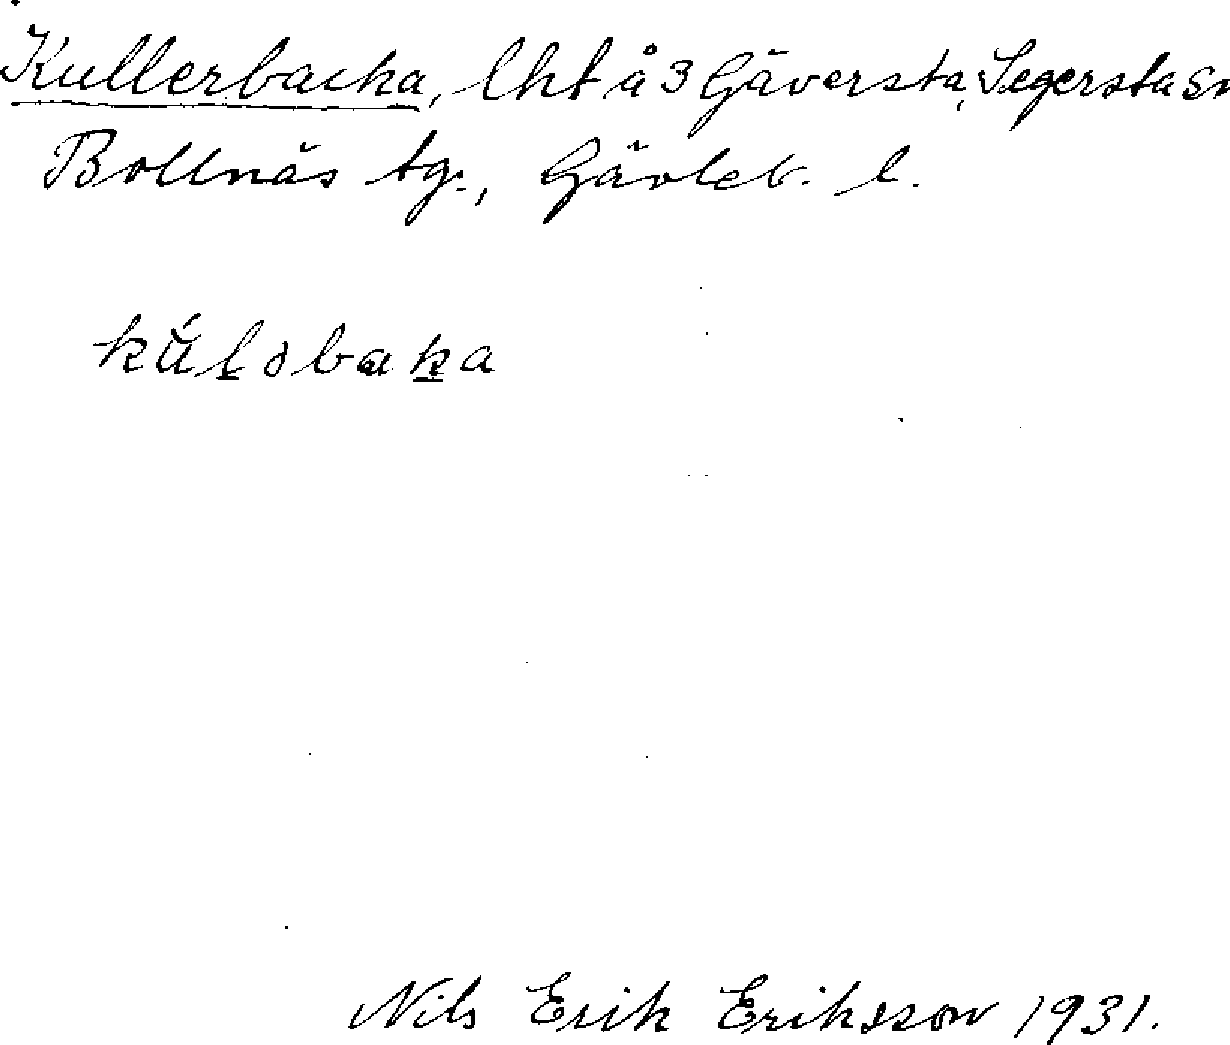 Kullerbacka, lht å 3 Gäversta, Segersta sn
Bollnäs tg., Gävleb. l.
kúl̲əbak̲a
Nils Erik Eriksson 1931.